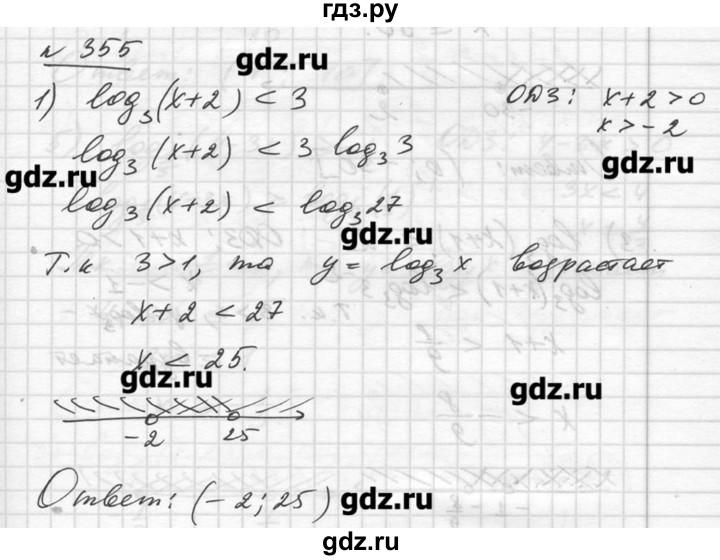 гдз.ру
N 355
gdz.ru
1) log₃(x+2) < 3
ОДЗ: x+2>0
x>-2
log₃(x+2) < 3 log₃3
gdz.ru
gdz.ru
log₃(x+2) < log₃27
gdz.ru
Т.к 3>1, то y = log₃x возрастает
x+2 < 27
x < 25.
gdz.ru
gdz.ru
-2 25
Ответ: (-2; 25)
gdz.ru
гдз.ру